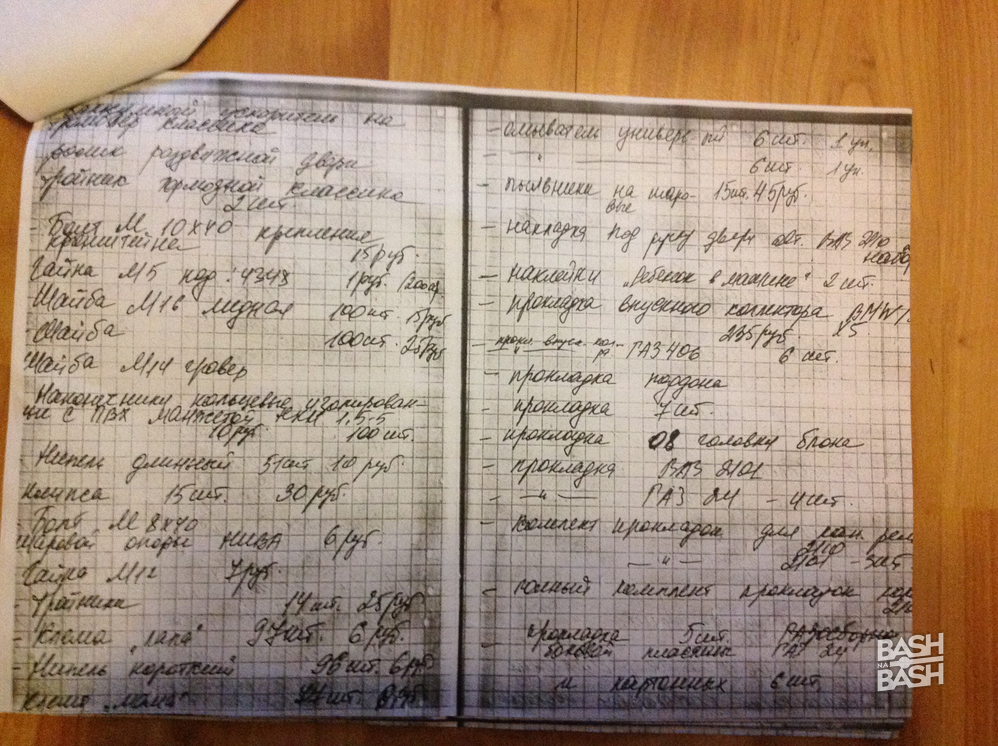 ускоритель на
трамблер классика
ролик раздвижной двери
тройник тормозной классика
2 шт
- Болт М 10х40 крепление
кронштейна 15 руб.
Гайка М5 код: 4343 1 руб. (200 шт)
Шайба М16 медная 100 шт. 15 руб
- Шайба 100 шт. 25 руб
Шайба М14 гровер
Наконечники кольцевые изолирован-
ные с ПВХ манжетой НКИ 1,5-5
10 руб. 100 шт.
- Нипель длинный 51 шт 10 руб.
Клипса 15 шт. 30 руб.
- Болт М 8х40
шаровой опоры НИВА 6 руб.
Гайка М12 7 руб.
- Тройники 14 шт. 25 руб
- Клема "папа" 97 шт. 6 руб.
- Нипель короткий 96 шт. 6 руб
клема "мама"
- омыватель универс. 6 шт. 1 уп.
- — " — 6 шт. 1 уп.
- пыльники на шаро- 15 шт. 45 руб.
вые
- накладка под ручку двери ВАЗ 2110
набор
- наклейки "Ребенок в машине" 2 шт.
- прокладка впускного коллектора BMW
235 руб. X5
- ГАЗ 406 6 шт.
- прокладка поддона
- прокладка 7 шт.
- прокладка 08 головки блока
- прокладка ВАЗ 2101
- — " — ГАЗ 24 - 4 шт
- комплект прокладок для
2110
— " — 2101 - 3 шт
- полный комплект прокладок
- прокладка 5 шт.
боковой ГАЗ 24
и картонных 6 шт.
BASH
НА
BASH